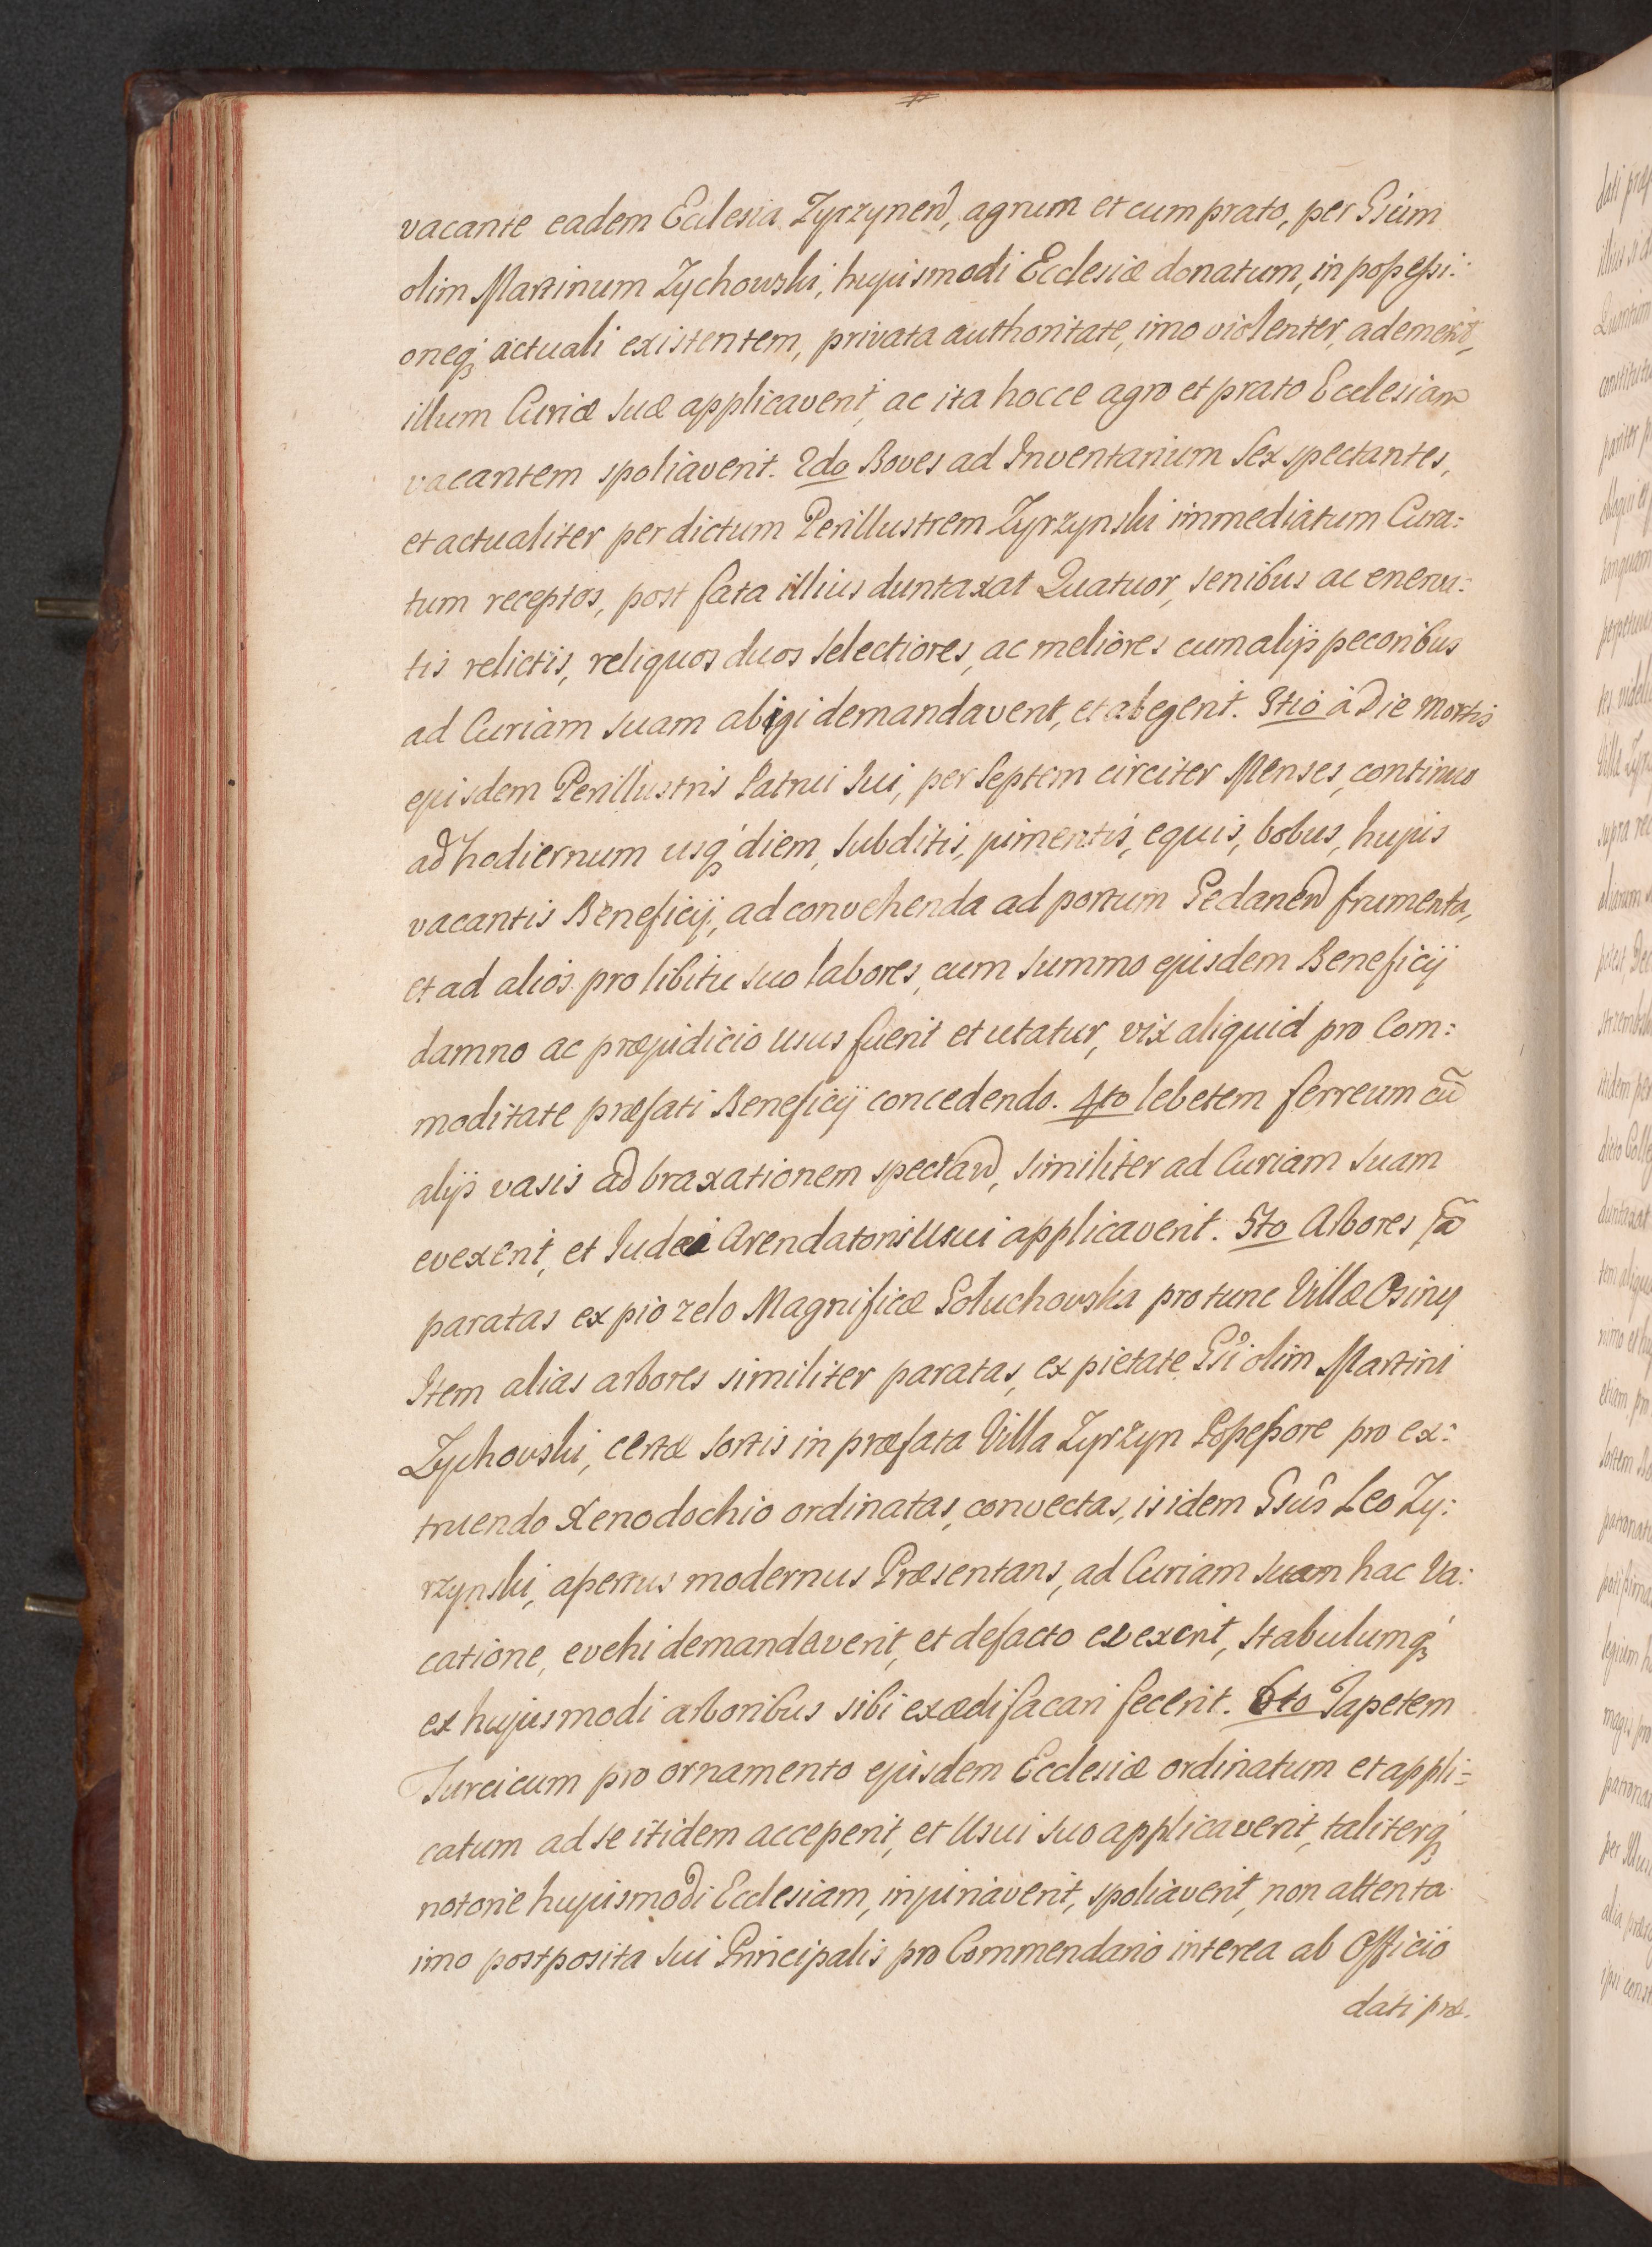 vacante eadem Ecclesia Zyrzynen, agrum et cum prato, per Gsum
olim Martinum Zychowski, hujusmodi Ecclesiæ donatum, in possessi:
oneq; actuali existentem, privata authoritate, imo violenter, ademerit,
illum Curiæ suæ applicaverit, ac ita hocce agro et prato Ecclesiam
vacantem spoliaverit. 2do Boves ad Inventarium sex spectantes,
et actualiter per dictum Perillustrem Zyrzynski immediatum Cura:
tum receptos, post fata illius duntaxat Quatuor, senibus ac enerva:
tis relictis, reliquos duos selectiores, ac meliores cum alijs pecoribus
ad Curiam suam abigi demandaverit, et abegerit. 3tio à Die mortis
ejusdem Perillustris Patrui sui, per septem circiter Menses, continuo
ad hodiernum usq; diem, subditis, jumentis, equis, bobus, hujus
vacantis Beneficij, ad convehenda ad portum frumenta,
et ad alios pro libitu suo labores, cum summo ejusdem Beneficij
damno ac præjudicio usus fuerit et utatur, vix aliquid pro Com:
moditate præfati Beneficij concedendo. 4to lebetem ferreum cũ
alijs vasis ad braxationem spectan, similiter ad Curiam suam
evexerit, et Judæi Arendatoris Usui applicaverit. 5to Arbores
paratas ex pio zelo Magnificæ Goluchovska pro tunc Villæ Osiny
Item alias arbores similiter paratas, ex pietate Gsi olim Martini
Zychovski, certæ sortis in præfata Villa Zyrzyn Possessore pro ex:
truendo Xenodochio ordinatas, convectas, is idem Gsus Leo Zy:
rzynski, apertus modernus Præsentans, ad Curiam suam hac Va:
catione, evehi demandaverit, et defacto evexerit, stabulumq;
ex hujusmodi arboribus sibi exædifacari fecerit. 6to Tapetem
Turcicum pro ornamento ejusdem Ecclesiæ ordinatum et appli:
catum ad se itidem acceperit, et Usui suo applicaverit, taliterq;
notorie hujusmodi Ecclesiam, injuriaverit, spoliaverit, non attenta
imo postposita sui Principalis pro Commendario interea ab Officio
dati præ.